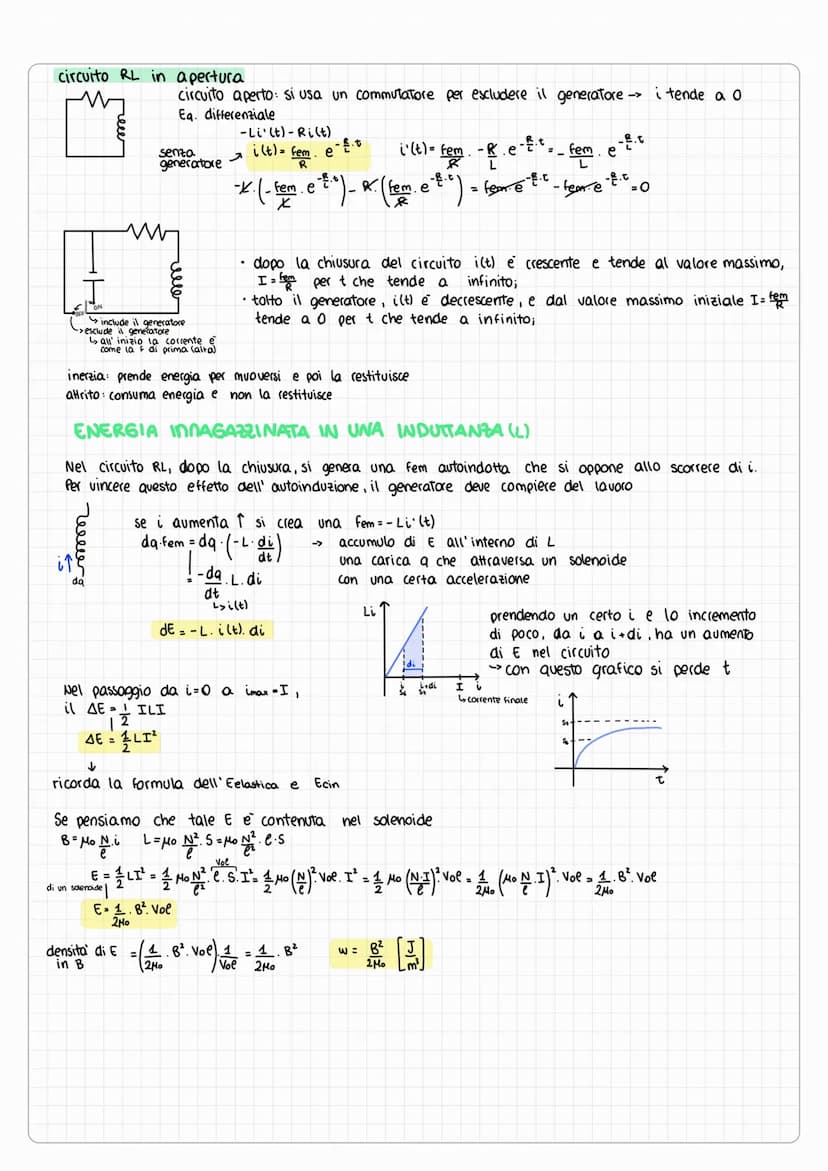 circuito RL in apertura
circuito aperto: si usa un commutatore per escludere il generatore → i tende a 0
Eq. differenziale
-Li'(t)-Ri(t)
senza generatore ↗ i(t)= fem/R · e^(-R/L·t)    i'(t)= fem/R · -R/L · e^(-R/L·t) = - fem/L · e^(-R/L·t)
-L·(-fem/L · e^(-R/L·t)) - R·(fem/R · e^(-R/L·t)) = fem·e^(-R/L·t) - fem·e^(-R/L·t) = 0
· dopo la chiusura del circuito i(t) è crescente e tende al valore massimo,
I = fem/R per t che tende a infinito;
· tolto il generatore, i(t) è decrescente, e dal valore massimo iniziale I= fem/R
tende a 0 per t che tende a infinito;
OFF ON
↳ include il generatore
↳ esclude il generatore
↳ all'inizio la corrente è
come la f di prima (alta)
inerzia: prende energia per muoversi e poi la restituisce
attrito: consuma energia e non la restituisce
ENERGIA IMMAGAZZINATA IN UNA INDUTTANZA (L)
Nel circuito RL, dopo la chiusura, si genera una fem autoindotta che si oppone allo scorrere di i.
Per vincere questo effetto dell'autoinduzione, il generatore deve compiere del lavoro
i↑
dq
se i aumenta ↑ si crea una fem = - Li'(t)
dq·fem = dq·(-L·di/dt) → accumulo di E all'interno di L
una carica q che attraversa un solenoide
con una certa accelerazione
= -dq/dt · L·di
↳ i(t)
dE = -L·i(t)·di
Li
di
i i+di I i
↳ corrente finale
prendendo un certo i e lo incremento
di poco, da i a i+di, ha un aumento
di E nel circuito
→ con questo grafico si perde t
i
t
Nel passaggio da i=0 a imax=I,
il ΔE = 1/2 ILI
ΔE = 1/2 LI²
↓
ricorda la formula dell'Eelastica e Ecin
Se pensiamo che tale E è contenuta nel solenoide
B=μ0 N/ℓ·i    L=μ0 N²/ℓ·S=μ0 N²/ℓ²·ℓ·S
Vol
E = 1/2 LI² = 1/2 μ0 N²/ℓ²·ℓ·S·I² = 1/2 μ0 (N/ℓ)²·Vol·I² = 1/2 μ0 (N·I/ℓ)²·Vol = 1/2μ0 (μ0 N/ℓ·I)²·Vol = 1/2μ0·B²·Vol
di un solenoide
E = 1/2μ0·B²·Vol
densità di E in B = (1/2μ0·B²·Vol)·1/Vol = 1/2μ0·B²    w = B²/2μ0 [J/m³]